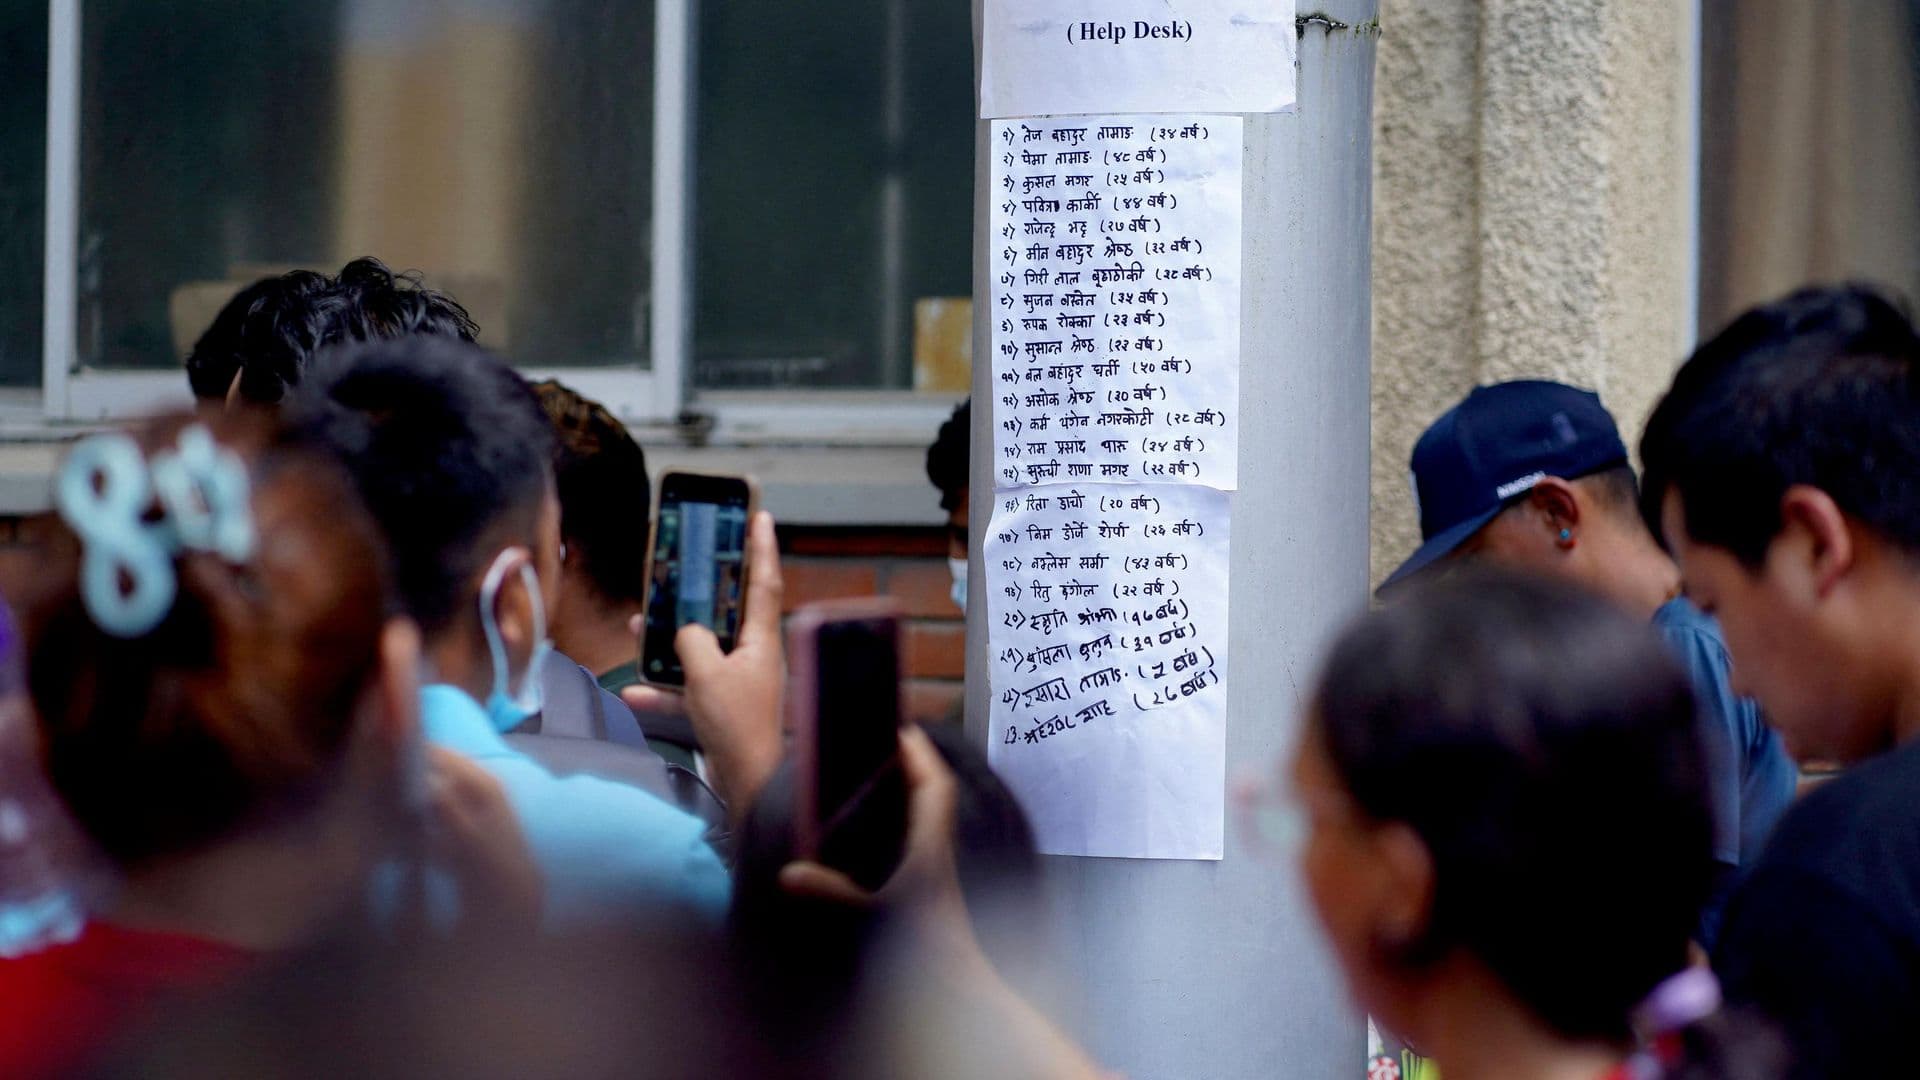 ( Help Desk)
१) तेज बहादुर तामाङ (३४ वर्ष)
२) पेमा तामाङ (४८ वर्ष)
३) कुसल मगर (२५ वर्ष)
४) पवित्रा कार्की (४४ वर्ष)
५) राजेन्द्र भट्ट (२७ वर्ष)
६) मीन बहादुर श्रेष्ठ (३२ वर्ष)
७) गिरी लाल बूढाठोकी (३८ वर्ष)
८) सुजन बस्नेत (३५ वर्ष)
९) रुपक रोक्का (२३ वर्ष)
१०) सुसान्त श्रेष्ठ (२३ वर्ष)
११) बल बहादुर घर्ती (५० वर्ष)
१२) असोक श्रेष्ठ (३० वर्ष)
१३) कर्म नगरकोटी (२८ वर्ष)
१४) राम प्रसाद थारु (३४ वर्ष)
१५) सुरुची राणा मगर (२२ वर्ष)
१६) रिता (२० वर्ष)
१७) निम डोर्जे शेर्पा (२६ वर्ष)
१८) सर्मा (४३ वर्ष)
१९) रितु डंगोल (३२ वर्ष)
२०) स्मृति (१७ वर्ष)
२१) (३१ वर्ष)
तामाङ (५ वर्ष)
२३. शाह (२८ वर्ष)